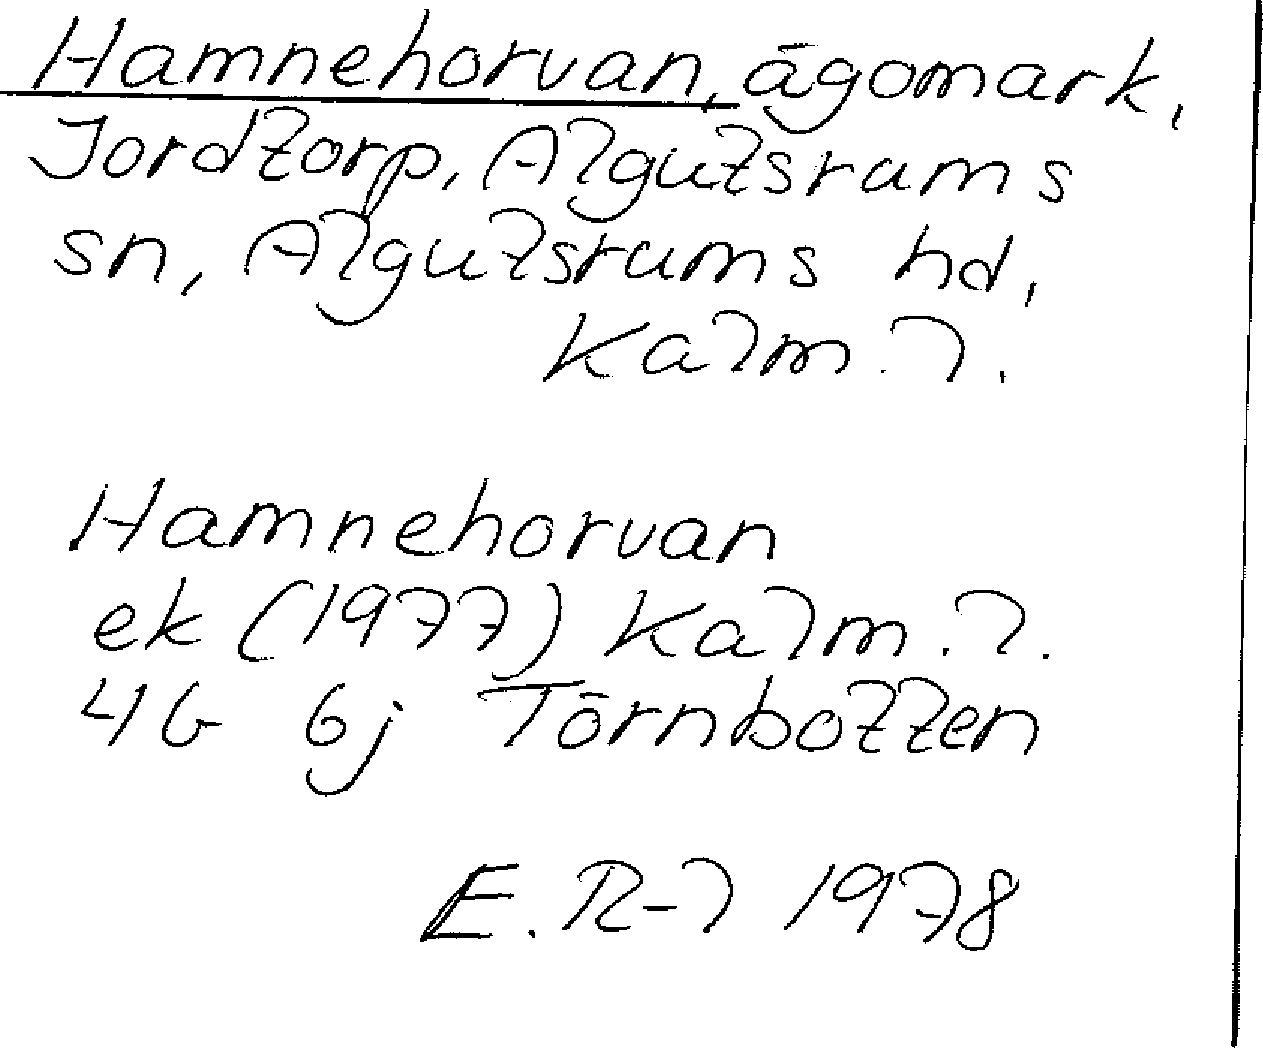 Hamnehorvan, ägomark,
Jordtorp, Algutsrums
sn, Algutsrums hd,
Kalm. l.
Hamnehorvan
ek (1977) Kalm. l.
4G 6j Törnbotten
E. R-l 1978